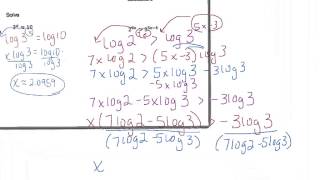 Solve
log 3^x = log 10
x log 3 = log 10
log 3 log 3
x = 2.0959
log 2^7x > log 3^(5x-3)
7x log 2 > (5x-3) log 3
7x log 2 > 5x log 3 - 3 log 3
-5x log 3
7x log 2 - 5x log 3 > -3 log 3
x (7 log 2 - 5 log 3) > -3 log 3
(7 log 2 - 5 log 3) (7 log 2 - 5 log 3)
x